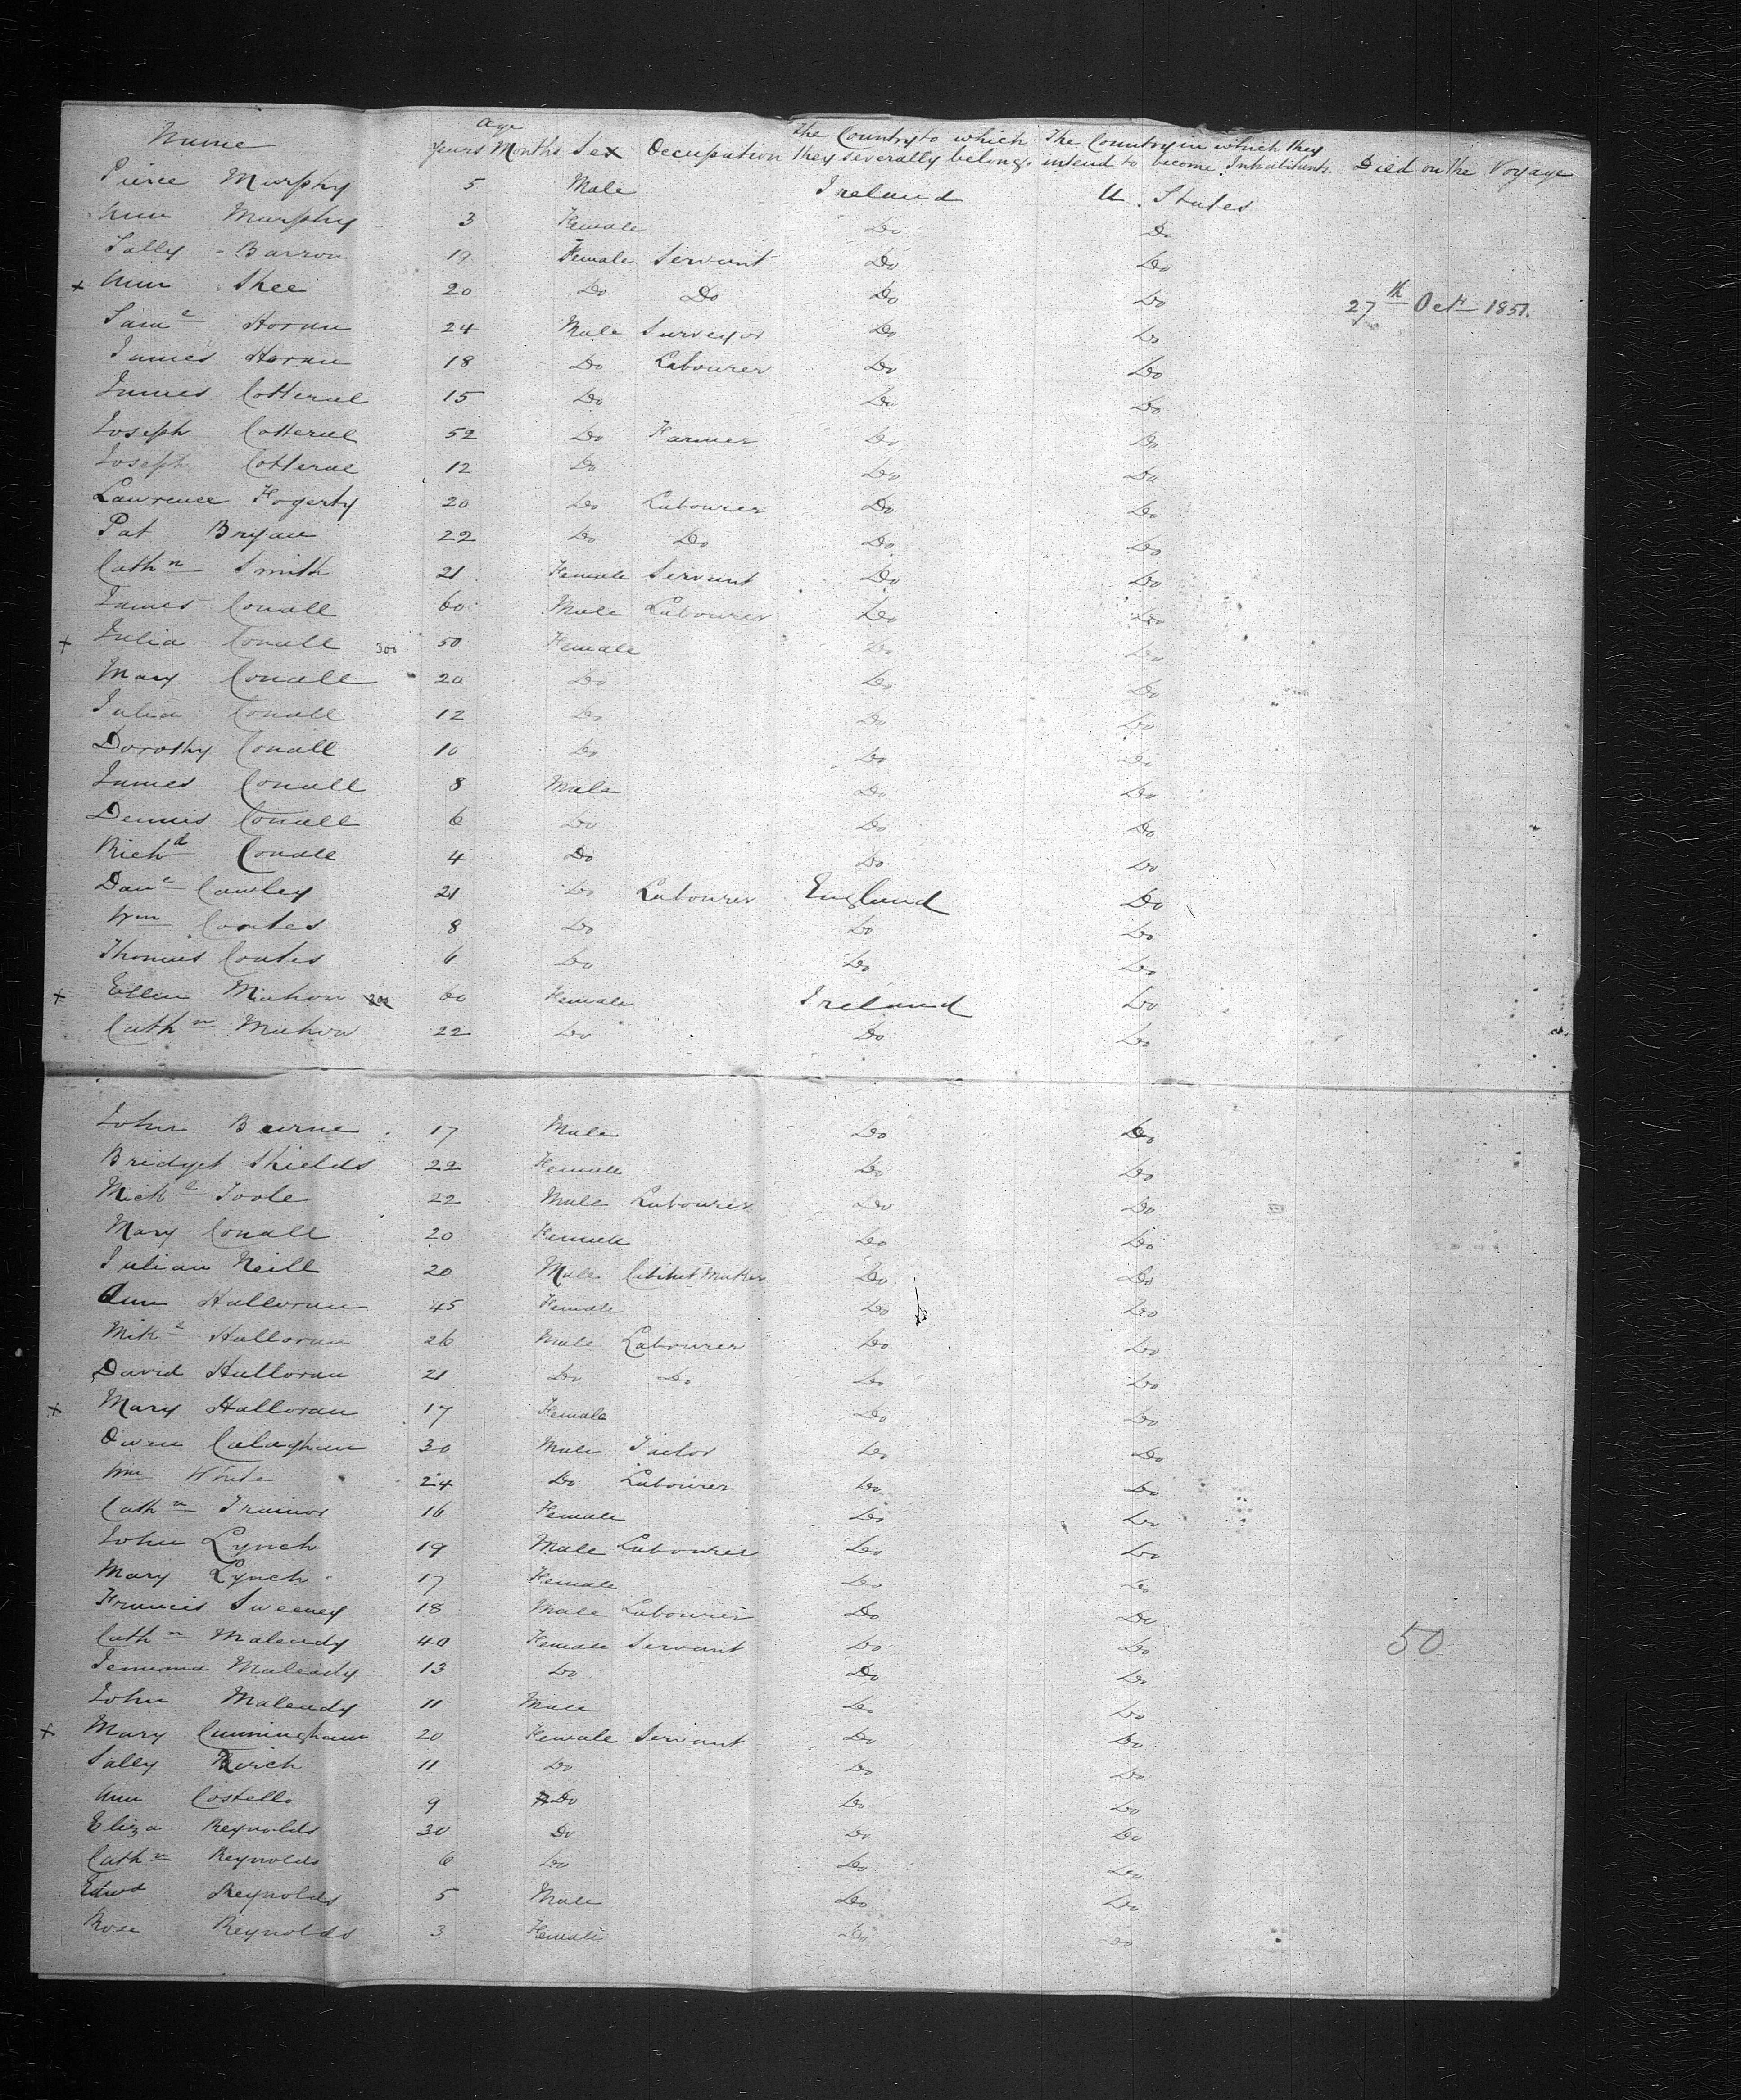 Name Age Years Months Sex Occupation The Country to which they severally belong. The Country in which they intend to become Inhabitants. Died on the Voyage
Pierce Murphy 5 Male Ireland U. States
Ann Murphy 3 Female Do Do
Sally Barron 19 Female Servant Do Do
+ Ann Shee 20 Do Do Do Do 27th Oct 1851.
Saml Horan 24 Male Surveyor Do Do
James Horan 18 Do Labourer Do Do
James Cotteral 15 Do Do Do
Joseph Cotteral 52 Do Farmer Do Do
Joseph Cotteral 12 Do Do Do
Lawrence Fogerty 20 Do Labourer Do Do
Pat Bryan 22 Do Do Do Do
Cathn Smith 21 Female Servant Do Do
James Conall 60 Male Labourer Do Do
+ Julia Conall 300 50 Female Do Do
Mary Conall 20 Do Do Do
Julia Conall 12 Do Do Do
Dorothy Conall 10 Do Do Do
James Conall 8 Male Do Do
Dennis Conall 6 Do Do Do
Richd Conall 4 Do Do Do
Danl Cawley 21 Do Labourer England Do
Wm Coates 8 Do Do Do
Thomas Coates 6 Do Do Do
+ Ellen Mahon 60 Female Ireland Do
Cathn Mahon 22 Do Do Do
John Burne 17 Male Do Do
Bridget Shields 22 Female Do Do
Michl Toole 22 Male Labourer Do Do
Mary Conall 20 Female Do Do
Julian Neill 20 Male Cabinet Maker Do Do
Ann Halloran 45 Female Do Do
Mikl Halloran 26 Male Labourer Do Do
David Halloran 21 Do Do Do Do
+ Mary Halloran 17 Female Do Do
Owen Calaghan 30 Male Tailor Do Do
Wm 24 Do Labourer Do Do
Cathn Trainor 16 Female Do Do
John Lynch 19 Male Labourer Do Do
Mary Lynch 17 Female Do Do
Francis Sweeney 18 Male Labourer Do Do
Cathn Maleady 40 Female Servant Do Do 50
Jemima Maleady 13 Do Do Do
John Maleady 11 Male Do Do
+ Mary Cunningham 20 Female Servant Do Do
Sally 11 Do Do Do
Ann Costello 9 Do Do Do
Eliza Reynolds 30 Do Do Do
Cathn Reynolds 6 Do Do Do
Edwd Reynolds 5 Male Do Do
Rose Reynolds 3 Female Do Do